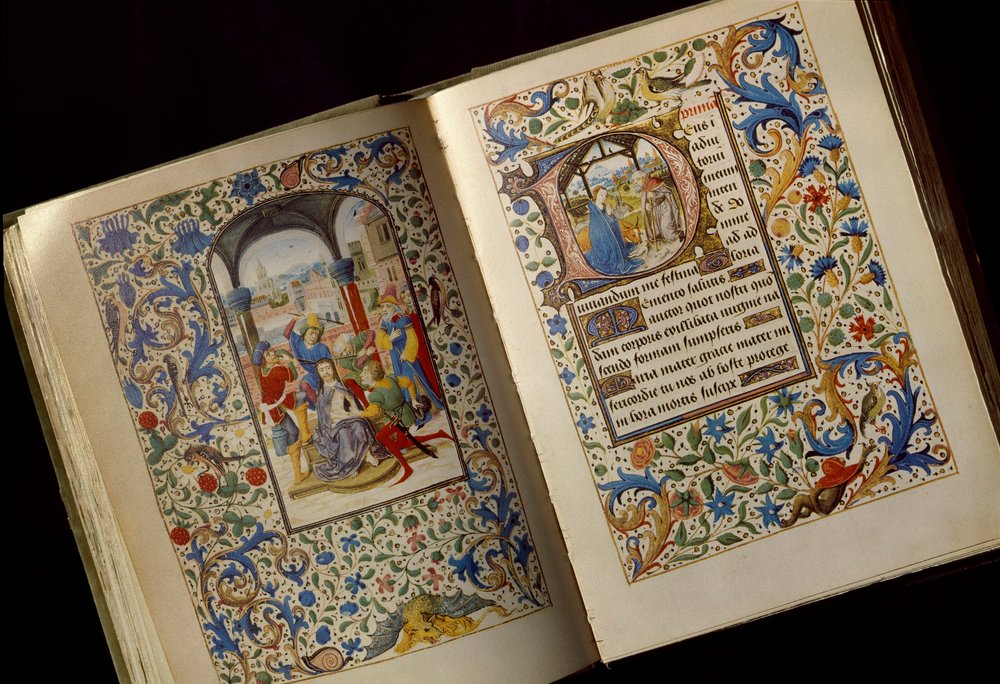 prima
Deus i
adiu
toriu
meum
inten
de Do
mine
ad ad
iuuandum me festina Gloria
Memento salutis
auctor quod nostri quon
dam corporis ex illibata virgine na
scendo formam sumpseris
Maria mater gracie mater mi
sericordie tu nos ab hoste protege
in hora mortis suscipe